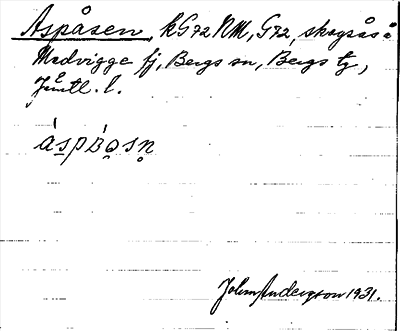 Aspåsen, kG72 NM, G72, skogsås i
Medvigge fj, Bergs sn, Bergs tg,
Jämtl. l.
áspʙ́o̬sn̥
John Anderson 1931.